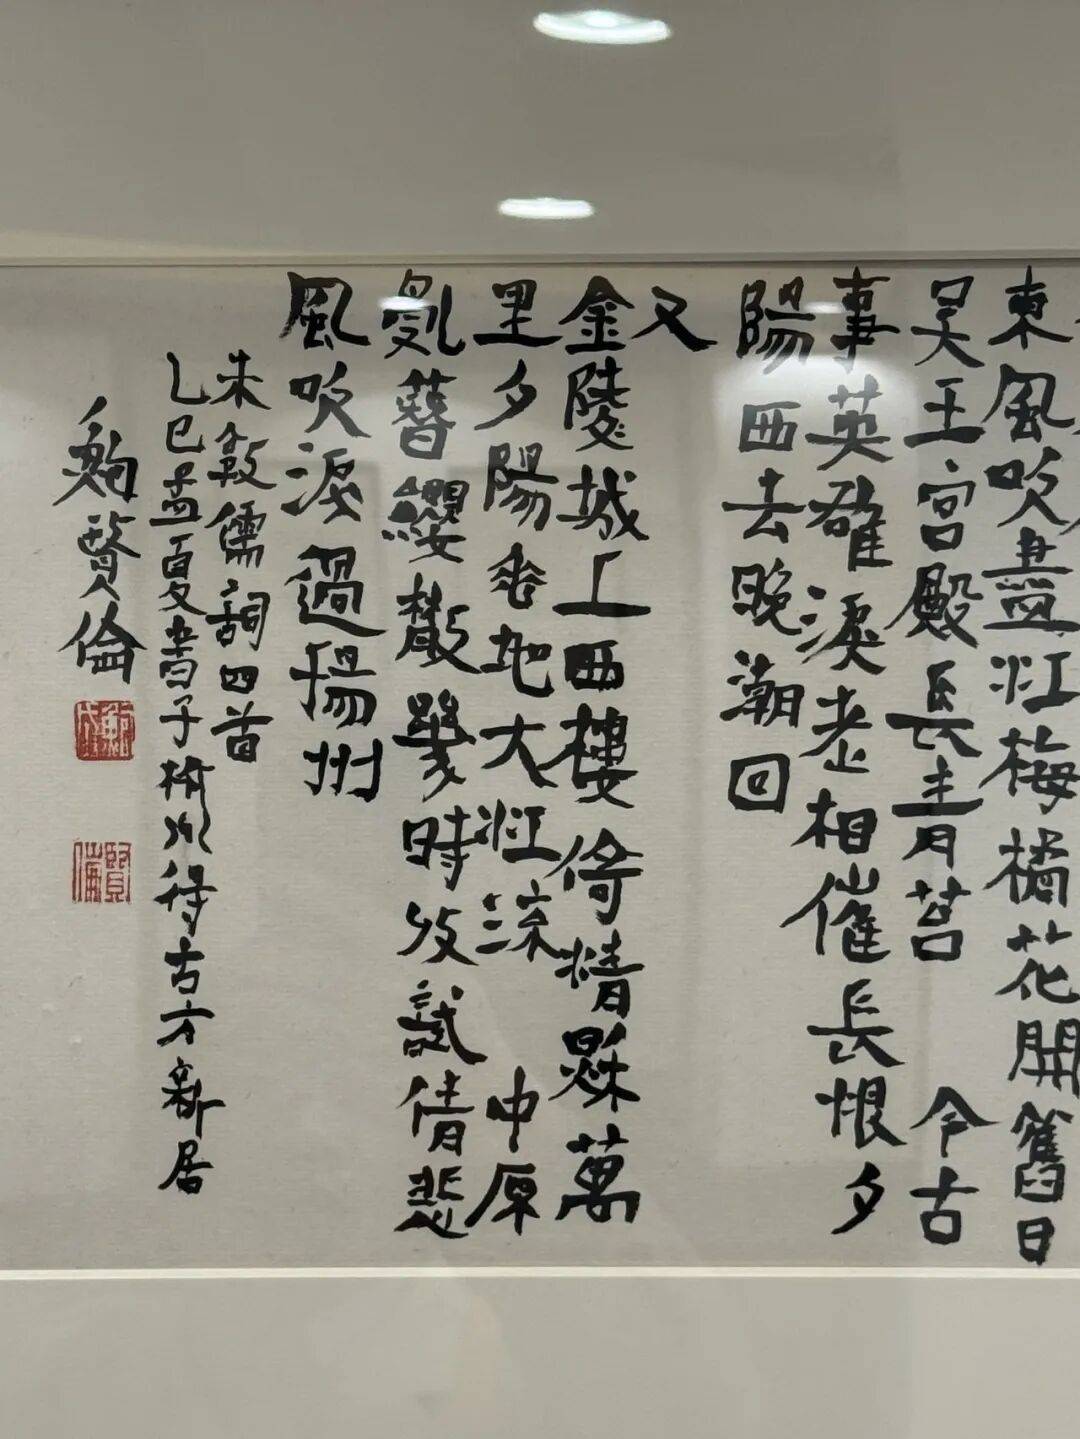 東風吹盡江梅橘花開舊日
吳王宮殿長青苔 今古
事英雄淚老相催長恨夕
陽西去晚潮回
又
金陵城上西樓倚清秋萬
里夕陽垂地大江流 中原
亂簪纓散幾時收試倩悲
風吹淚過揚州
朱敦儒詞四首
乙巳孟夏書于杭州得古方新居
鮑賢倫